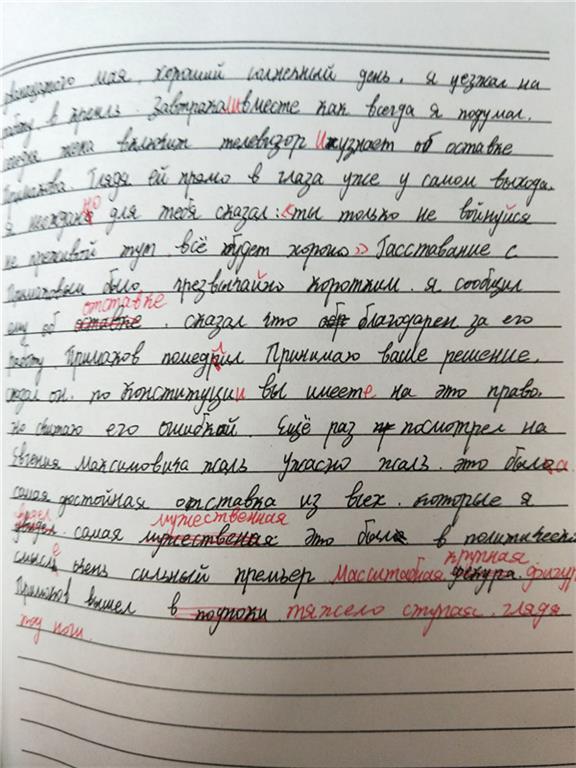 мая, хороший солнечный день. я уезжал на
работу в кремль Завтракали вместе как всегда я подумал.
жена включит телевизор и узнает об оставке
Примакова. Глядя ей прямо в глаза уже у самом выхода.
я неожиданно для тебя сказал: «ты только не войнуйся
не преживой тут. всё будет хороно» Расставание с
Примаковым было чрезвычайно коротким. я сообщил
отставке
ему об оставке. сказал что благодарен за его
работу. Примаков Принимаю ваше решение.
сказал он. по Конституции вы имеете на это право.
но считаю его ошибкой. Ещё раз посмотрел на
Евгения Максимовича жаль Ужасно жаль. это была
самая достойная отставка из всех. которые я
мужественная
самая это был в политическо
крупная
смысле очень сильный премьер Масштабная фигур
Примаков вышел в подноки. тяжело ступая. глядя
под ноги.